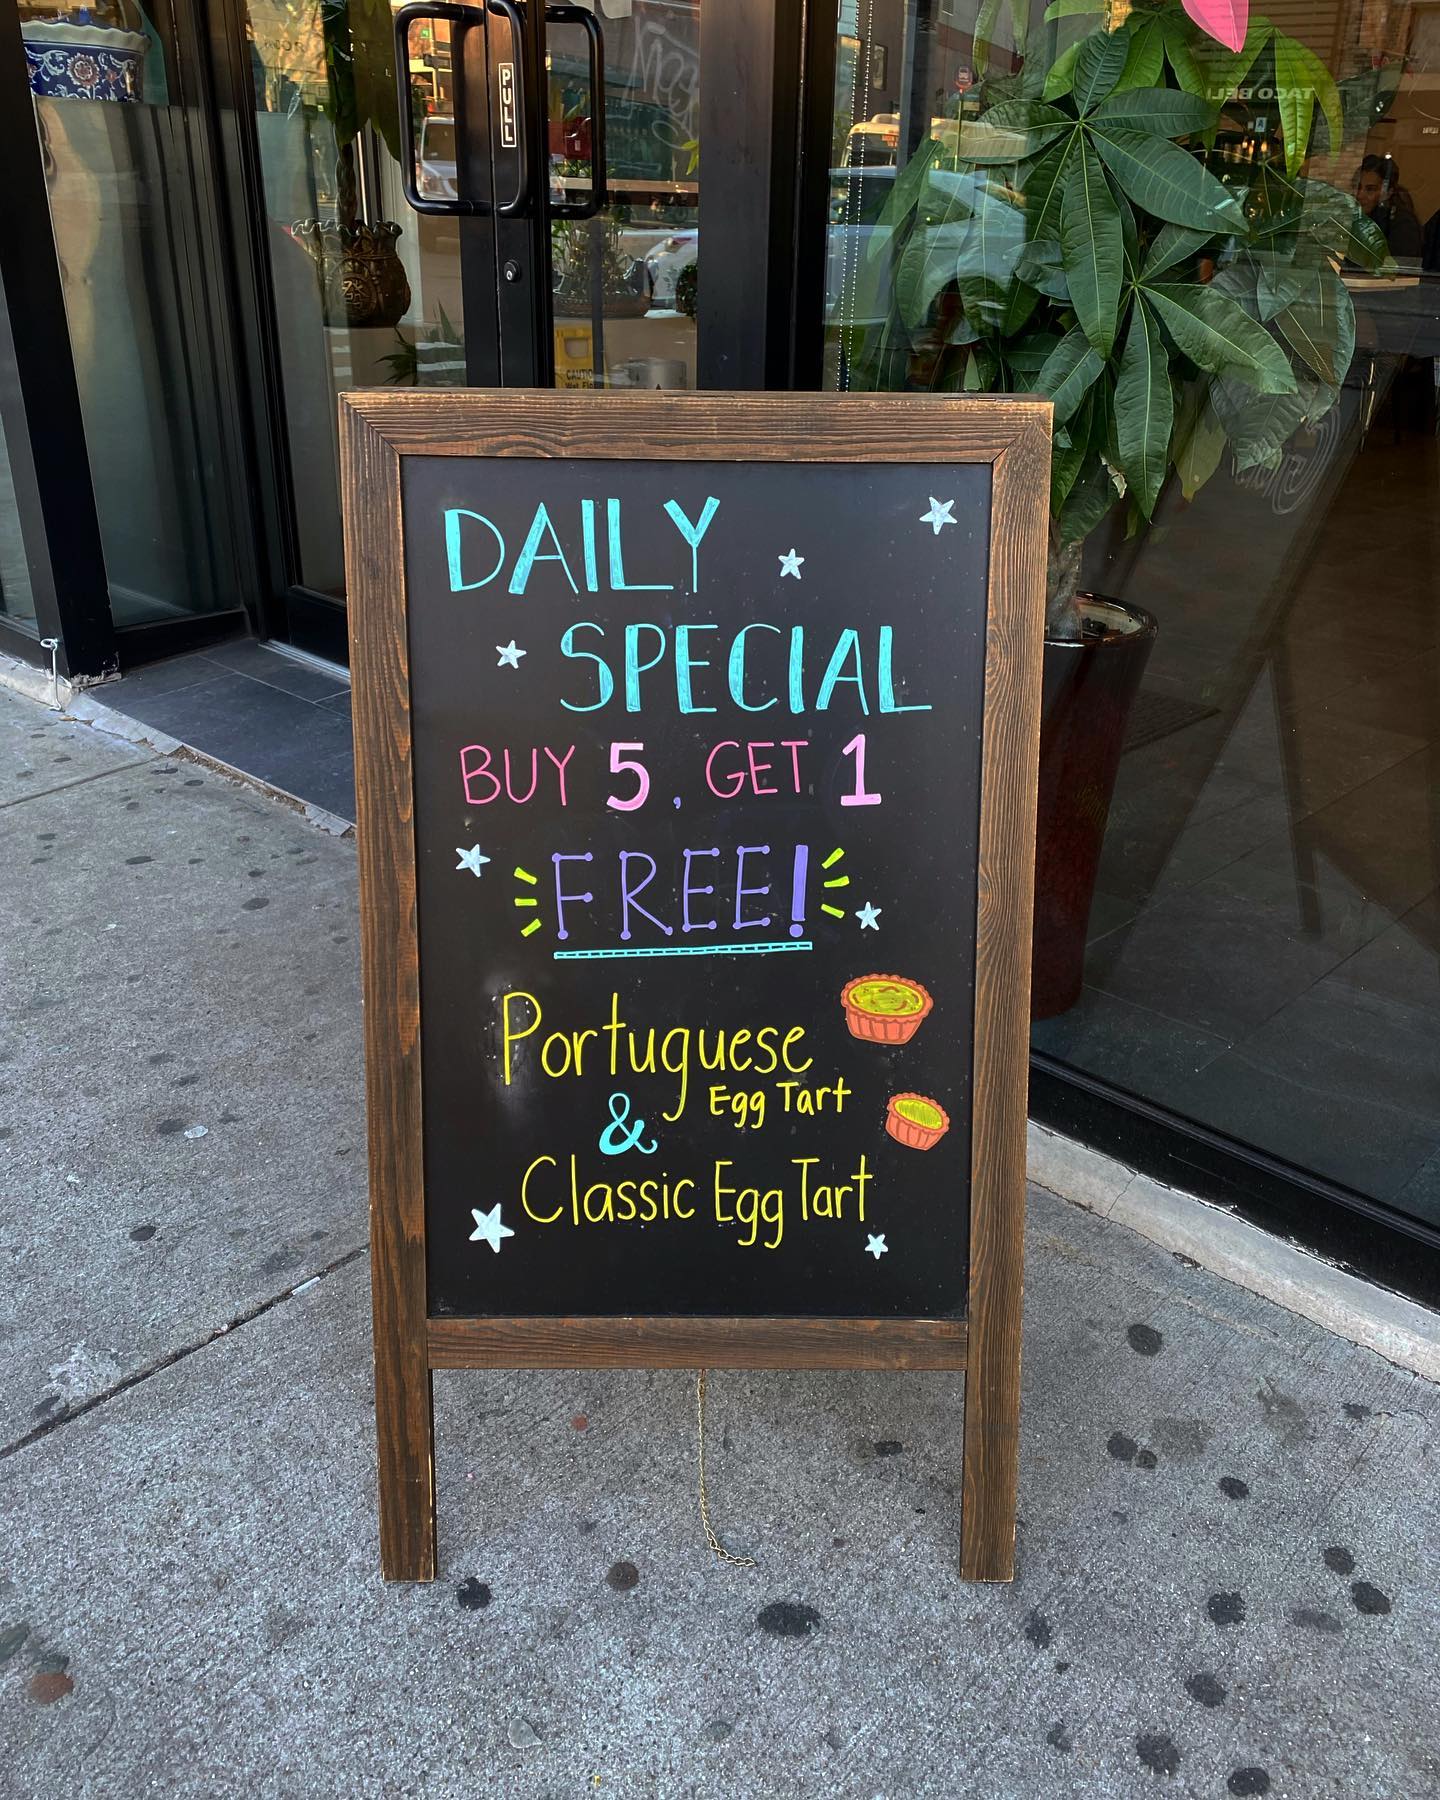 PULL
TACO BELL
CAUTION
Wet Floor
DAILY
SPECIAL
BUY 5, GET 1
FREE!
Portuguese
Egg Tart
&
Classic Egg Tart